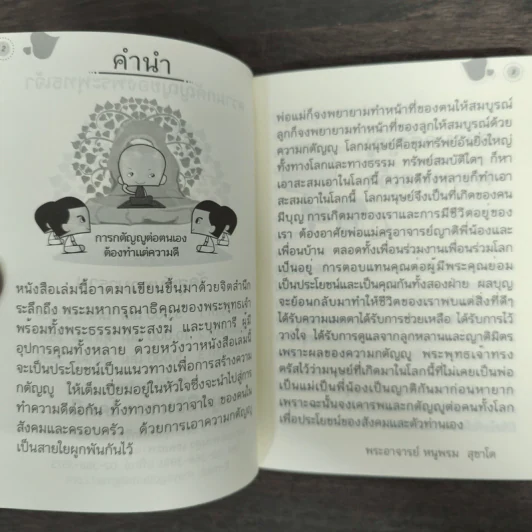 คำนำ
การกตัญญูต่อตนเอง
ต้องทำแต่ความดี
หนังสือเล่มนี้อาตมาเขียนขึ้นมาด้วยจิตสำนึก
ระลึกถึง พระมหากรุณาธิคุณของพระพุทธเจ้า
พร้อมทั้งพระธรรมพระสงฆ์ และบุพการี ผู้มี
อุปการคุณทั้งหลาย ด้วยหวังว่าหนังสือเล่มนี้
จะเป็นประโยชน์เป็นแนวทางเพื่อการสร้างความ
กตัญญู ให้เต็มเปี่ยมอยู่ในหัวใจซึ่งจะนำไปสู่การ
ทำความดีต่อกัน ทั้งทางกายวาจาใจ ของคนใน
สังคมและครอบครัว ด้วยการเอาความกตัญญู
เป็นสายใยผูกพันกันไว้
พ่อแม่ก็จงพยายามทำหน้าที่ของตนให้สมบูรณ์
ลูกก็จงพยายามทำหน้าที่ของลูกให้สมบูรณ์ด้วย
ความกตัญญู โลกมนุษย์คือขุมทรัพย์อันยิ่งใหญ่
ทั้งทางโลกและทางธรรม ทรัพย์สมบัติใดๆ ก็หา
เอาสะสมเอาในโลกนี้ ความดีทั้งหลายก็ทำเอา
สะสมเอาในโลกนี้ โลกมนุษย์จึงเป็นที่เกิดของคน
มีบุญ การเกิดมาของเราและการมีชีวิตอยู่ของ
เรา ต้องอาศัยพ่อแม่ครูอาจารย์ญาติพี่น้องและ
เพื่อนบ้าน ตลอดทั้งเพื่อนร่วมงานเพื่อนร่วมโลก
เป็นอยู่ การตอบแทนคุณต่อผู้มีพระคุณย่อม
เป็นประโยชน์และเป็นคุณกันทั้งสองฝ่าย ผลบุญ
จะย้อนกลับมาทำให้ชีวิตของเราพบแต่สิ่งที่ดีๆ
ได้รับความเมตตาได้รับการช่วยเหลือ ได้รับการไว้
วางใจ ได้รับการดูแลจากลูกหลานและญาติมิตร
เพราะผลของความกตัญญู พระพุทธเจ้าทรง
ตรัสไว้ว่ามนุษย์ที่เกิดมาในโลกนี้ที่ไม่เคยเป็นพ่อ
เป็นแม่เป็นพี่น้องเป็นญาติกันมาก่อนหายาก
เพราะฉะนั้นจงเคารพและกตัญญูต่อคนทั้งโลก
เพื่อประโยชน์ของสังคมและตัวท่านเอง
พระอาจารย์ หนูพรม สุชาโต